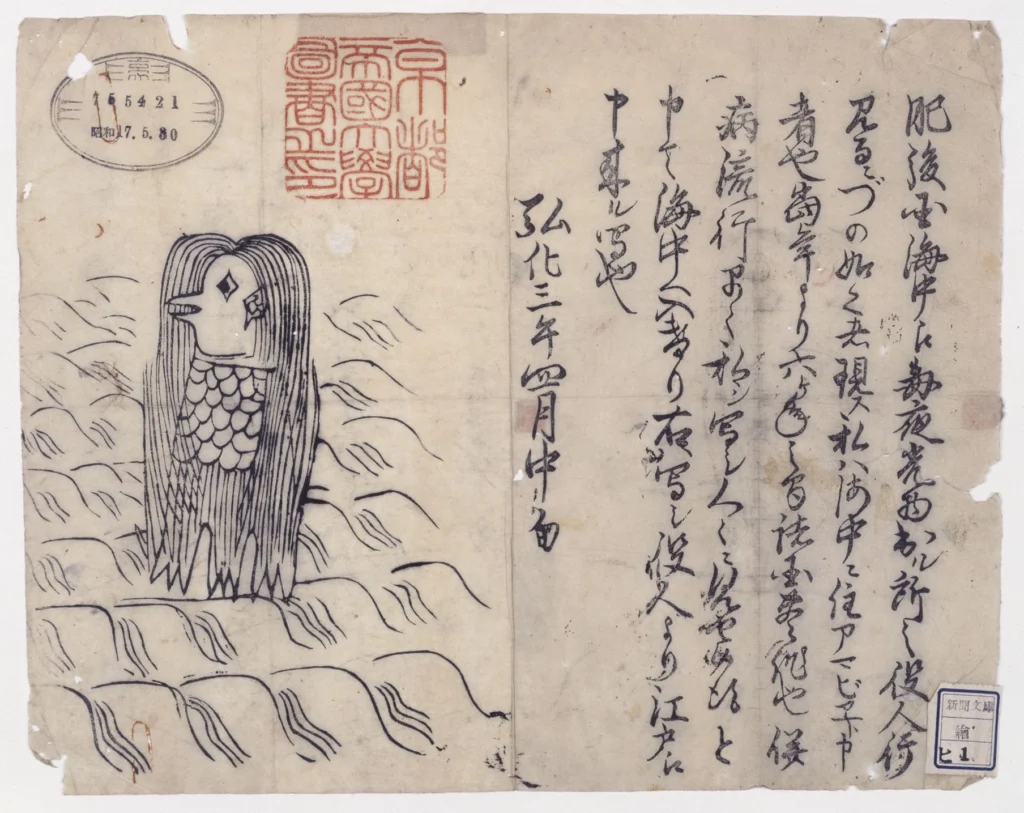 肥後国海中え毎夜光物出ル所之役人行
見るニづの如く者現ス私ハ海中ニ住アマビヱト申
者也當年より六ヶ年之間諸国豊作也併
病流行早々私ヲ写シ人々ニ見セ候得と
申て海中へ入けり右写シ役人より江戸え
申来ル写也
弘化三年四月中旬
京都
帝國大學
圖書之印
765421
昭和17.5.30
新聞文庫
繪
ヒ 1.